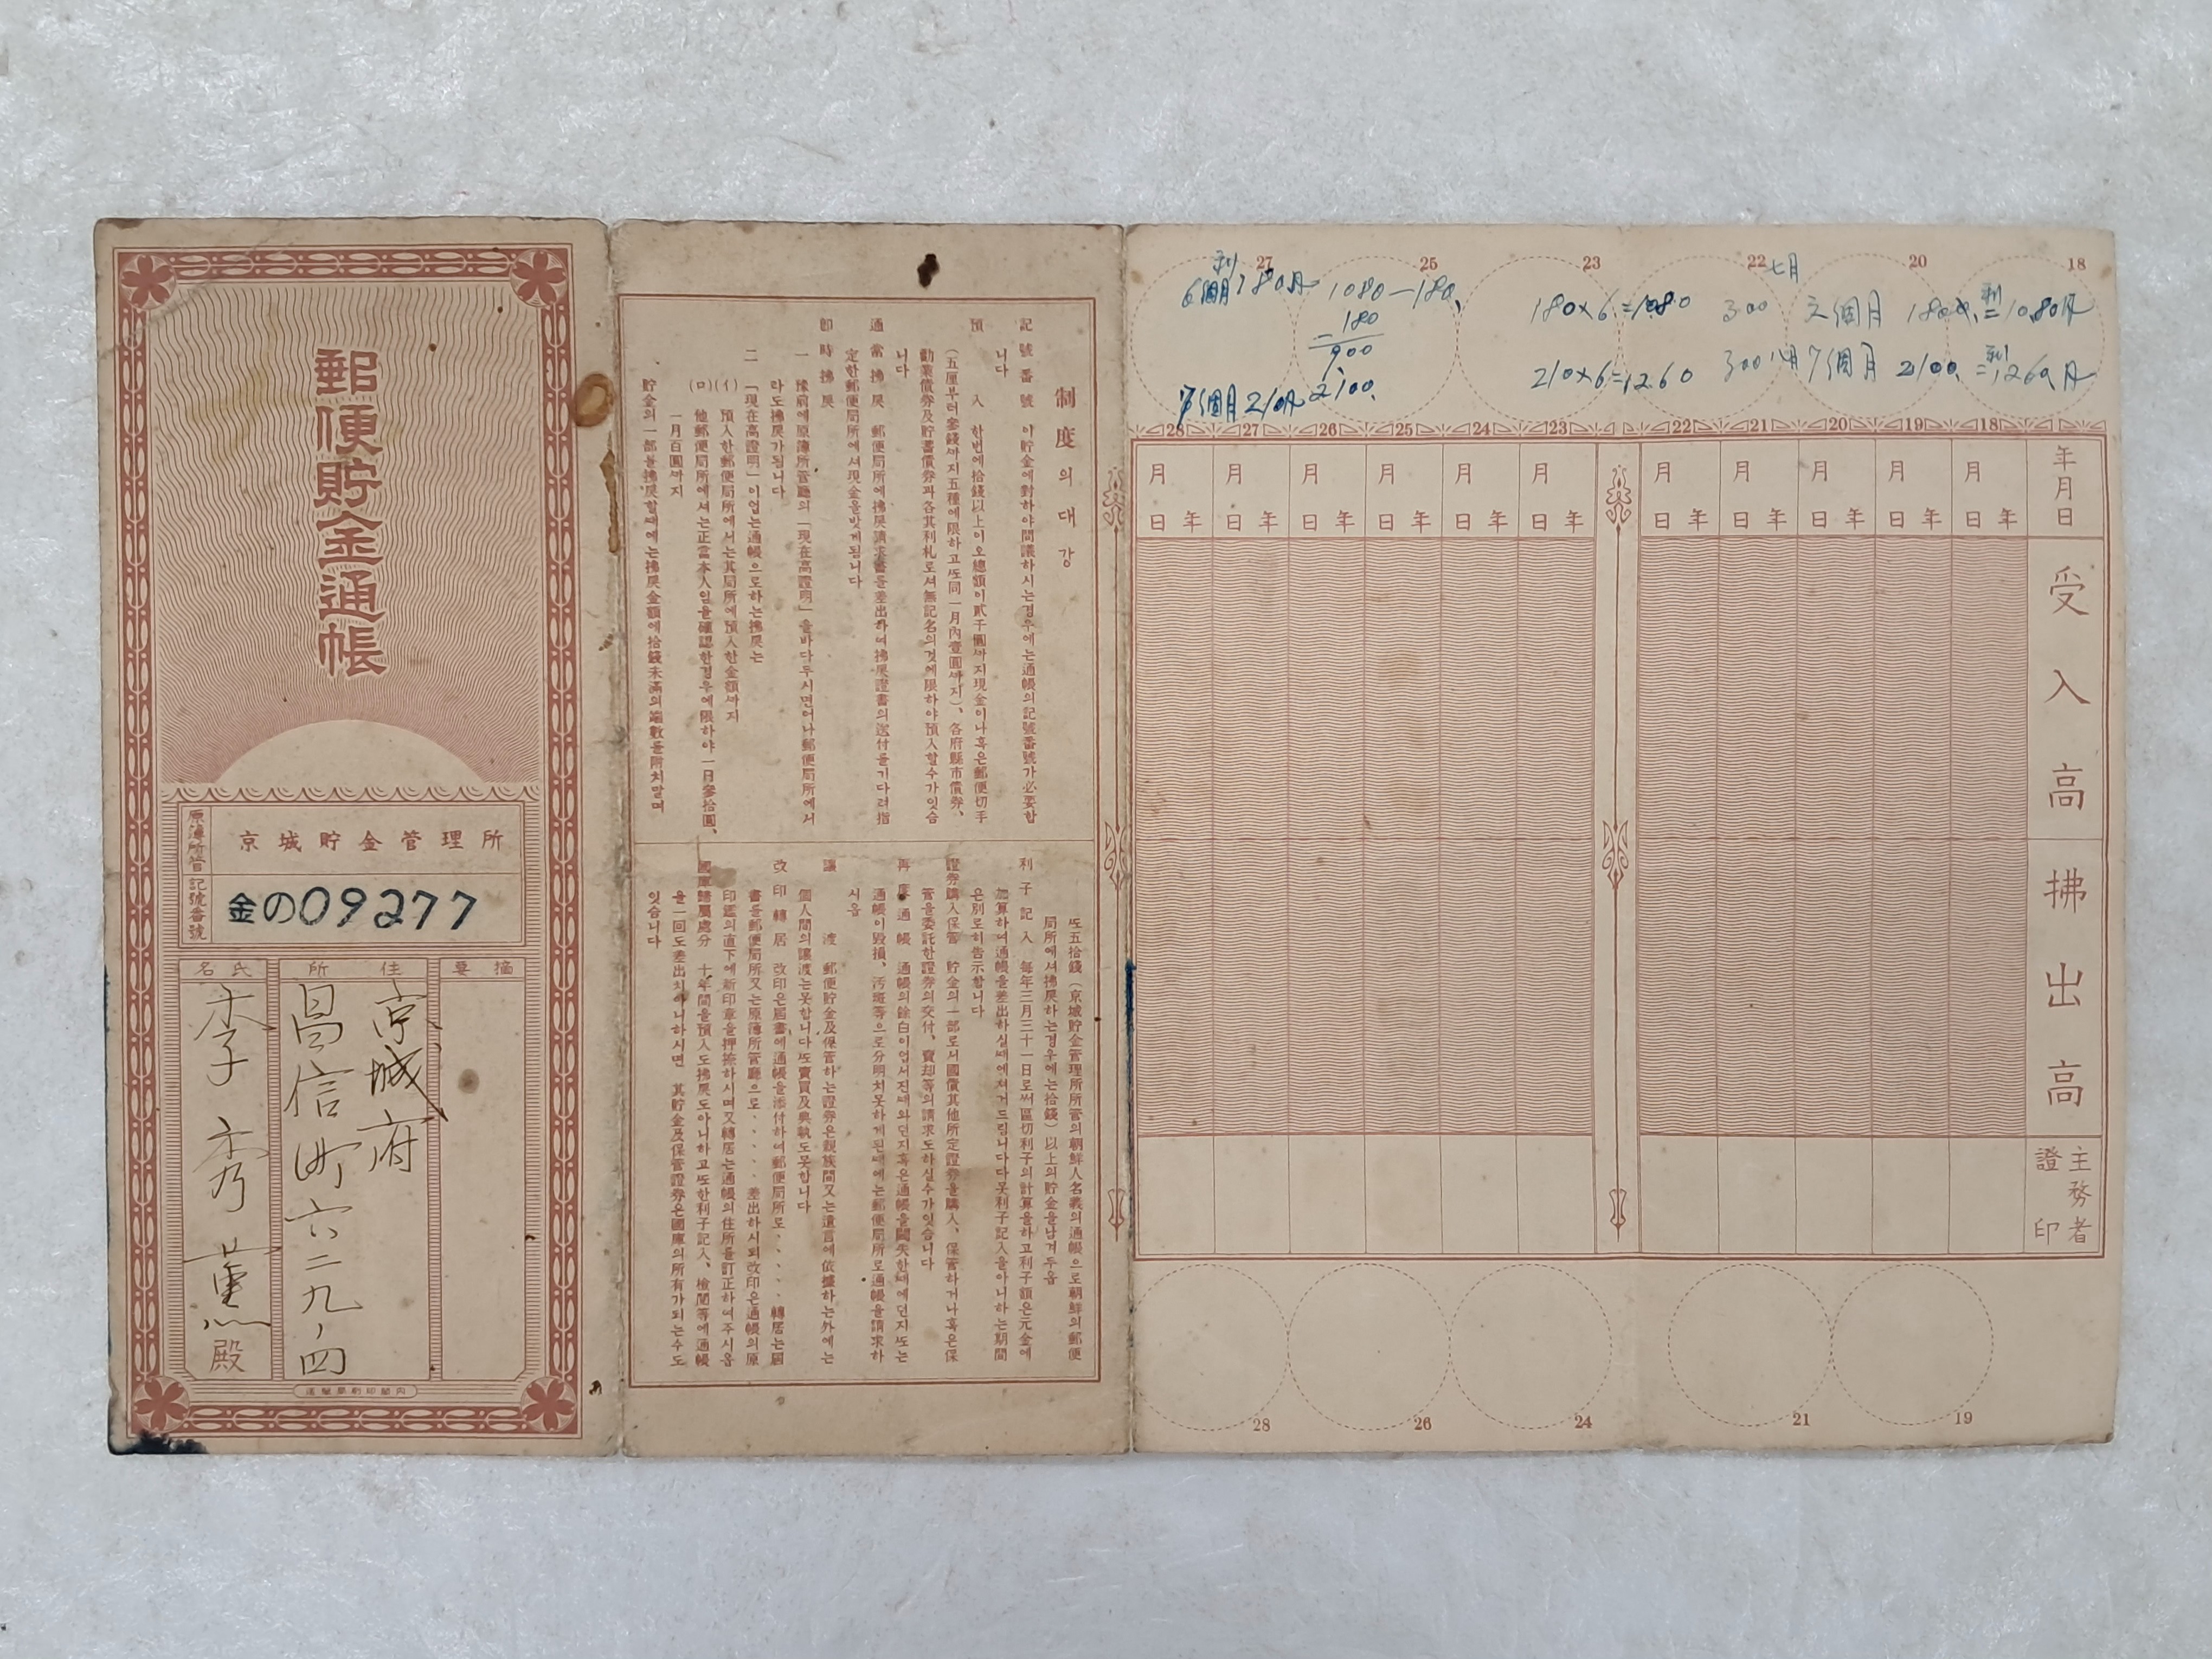 郵便貯金通帳
原簿所管
京城貯金管理所
記號番號
金の09277
摘要
住所
氏名
京城府
昌信町六二九,四
李秀薰殿
内閣印刷局製造
制度의대강
記號番號 이貯金에對하야問議하시는경우에는通帳의記號番號가必要합
니다
預入 한번에拾錢以上이오總額이貳千圓까지現金이나혹은郵便切手
(五厘부터參錢까지五種에限하고또同一月內壹圓까지)、各府縣市債券、
勸業債券及貯蓄債券과各其利札로셔無記名의것에限하야預入할수가잇슴
니다
通常拂戾 郵便局所에拂戾請求書를差出하여拂戾證書의送付를기다려指
定한郵便局所에셔現金을밧게됨니다
卽時拂戾
一 豫前에原簿所管廳의「現在高證明」을바다두시면어나郵便局所에서
라도拂戾가됨니다
二 「現在高證明」이업는通帳으로하는拂戾는
(イ) 預入한郵便局所에서는其局所에預入한金額까지
(ロ) 他郵便局所에셔는正當本人임을確認한경우에限하야一日參拾圓、
一月百圓까지
貯金의一部를拂戾할때에는拂戾金額에拾錢未滿의端數를附치말며
또五拾錢(京城貯金管理所所管의朝鮮人名義의通帳으로朝鮮의郵便
局所에셔拂戾하는경우에는拾錢)以上의貯金을남겨두음
利子記入 每年三月三十一日로써區切利子의計算을하고利子額은元金에
加算하여通帳을差出하실때에져거드림니다다못利子記入을아니하는期間
은別로히告示합니다
證券購入保管 貯金의一部로서國債其他所定證券을購入、保管하거나혹은保
管을委託한證券의交付、賣却等의請求도하실수가잇슴니다
再度通帳 通帳의餘白이업서진때와던지혹은通帳을闘失한때에던지또는
通帳이毁損、汚斑等으로分明치못하게된때에는郵便局所로通帳을請求하
시음
讓渡 郵便貯金及保管하는證券은親族間又는遺言에依據하는外에는
個人間의讓渡는못합니다또賣買及典執도못합니다
改印轉居 改印은屆書에通帳을添付하여郵便局所로、、、、轉居는屆
書를郵便局所又는原簿所管廳으로、、、、、差出하시되改印은通帳의原
印鑑의直下에新印章을押捺하시며又轉居는通帳의住所를訂正하여주시옴
國庫歸屬處分 十年間을預入도拂戾도아니하고또한利子記入、檢閱等에通帳
을一回도差出치아니하시면 其貯金及保管證券은國庫의所有가되는수도
잇슴니다
27 25 23 22 20 18
七月
300 六個月 = 10.80月
300 八月 7個月 2100 = 1260月
180×6=1080
210×6=1260
1080-180
180
900
2100
6個月 180月
7個月 210月
28 27 26 25 24 23 22 21 20 19 18
年月日
月 月 月 月 月 月 月 月 月 月 月
日年 日年 日年 日年 日年 日年 日年 日年 日年 日年 日年
受入高
拂出高
主務者證印
28 26 24 21 19